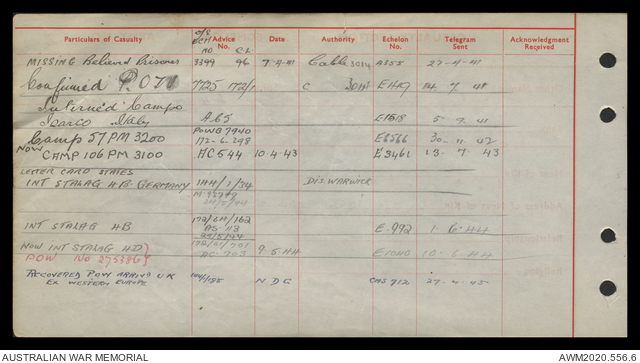 Particulars of Casualty Advice No. Date Authority Echelon No. Telegram Sent Acknowledgment Received
NO CL
MISSING Believed Prisoner 3399 96 7-4-41 Cable A355 27-4-41
Confirmed P.O.W 1725 172/1 C E1419 14.7.41
Interned Campo
Italy A65 E1518 5.7.41
POWB 7940
Camp 57 PM 3200 172-6-298 E6566 30.11.42
NOW CAMP 106 PM 3100 AC544 10.4.43 E3461 13.7.43
LETTER CARD STATES
INT STALAG GERMANY 144/1/34 DIS. WARWICK
172/6H/162
INT STALAG HB AS.113 E.992 1.6.44
NOW INT STALAG HD 9.5.44 10.6.44
POW No
RECOVERED POW ARRIVED U.K NDG CAS 912 27.4.45
EX WESTERN EUROPE
AUSTRALIAN WAR MEMORIAL AWM2020.556.6